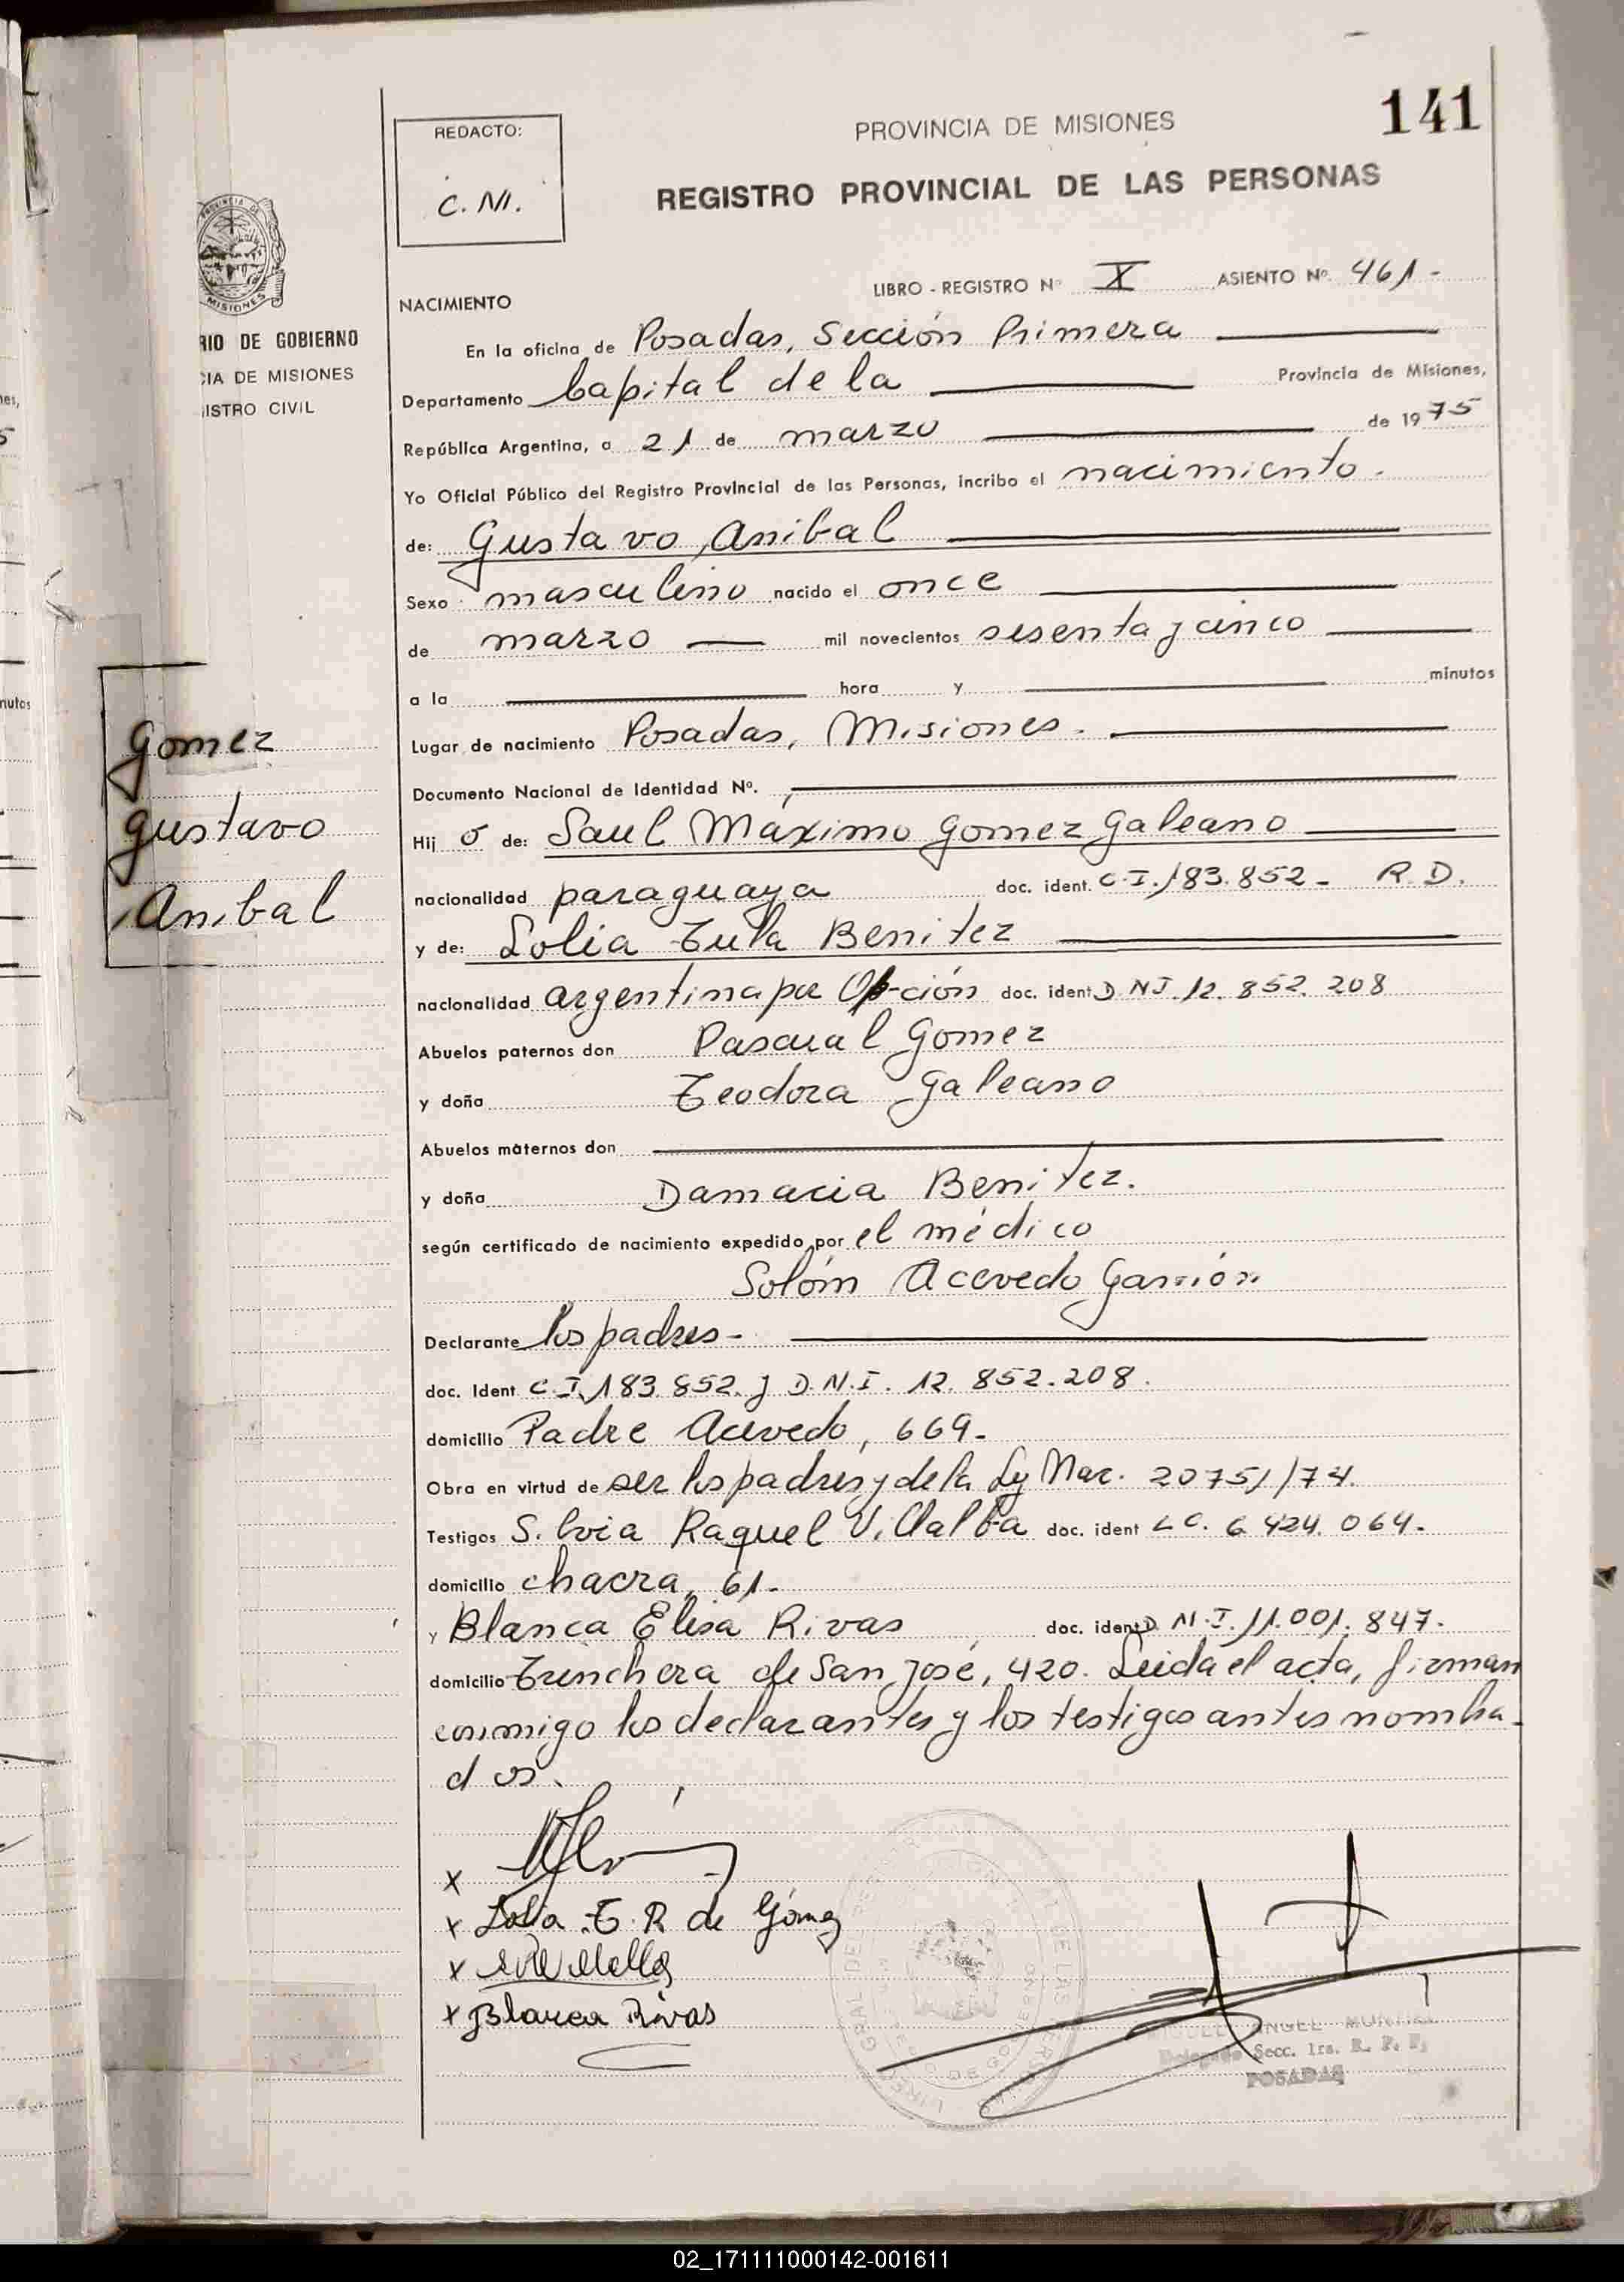 141
REDACTO:
C. M.
PROVINCIA DE MISIONES
REGISTRO PROVINCIAL DE LAS PERSONAS
MISIONES
RIO DE GOBIERNO
CIA DE MISIONES
ISTRO CIVIL
LIBRO - REGISTRO Nº X ASIENTO Nº. 461-
NACIMIENTO
En la oficina de Posadas, Sección Primera
Departamento Capital de la Provincia de Misiones,
República Argentina, a 21 de marzo de 1975
Yo Oficial Público del Registro Provincial de las Personas, incribo el nacimiento.
de: Gustavo Anibal
Sexo masculino nacido el once
de marzo mil novecientos sesenta y cinco
a la hora y minutos
Lugar de nacimiento Posadas, Misiones.
Documento Nacional de Identidad Nº.
Gomez
Gustavo
Anibal
Hij o de: Saul Máximo Gomez Galeano
nacionalidad paraguaya doc. ident. C.I. 183.852- R.D.
y de: Lolia Tula Benitez
nacionalidad argentina por Opción doc. ident D NI. 12. 852. 208
Abuelos paternos don Pascual Gomez
y doña Teodora Galeano
Abuelos maternos don
y doña Damacia Benitez.
según certificado de nacimiento expedido por el médico
Solóm Acevedo
Declarante los padres-
doc. Ident C.I. 183.852. y D.N.I. 12. 852.208.
domicilio Padre Acevedo, 669-
Obra en virtud de ser los padres y de la Ley Nac. 20751/74.
Testigos Silvia Raquel Villalba doc. ident L C. 6.424.064.
domicilio chacra, 61-
y Blanca Elisa Rivas doc. ident D. N.I. 11.001.847.
domicilio Trinchera de San José, 420. Leida el acta, firman
conmigo los declarantes y los testigos antes nombra-
dos.
x
x Lolia T. B. de Gómez
x
x Blanca Rivas
MIGUEL ANGEL
Delegado Secc. 1ra. R. P. P.
POSADAS
02_171111000142-001611